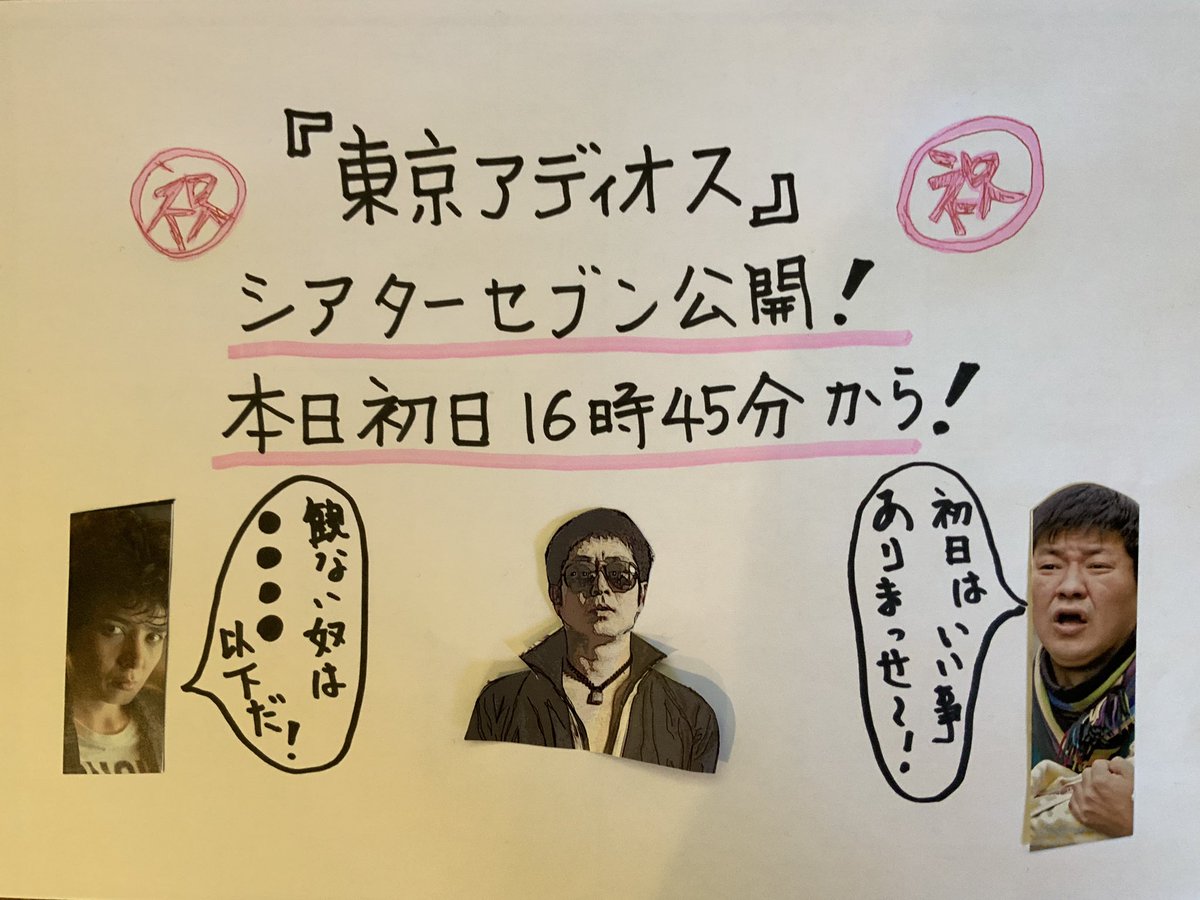 祝
『東京アディオス』
祝
シアターセブン公開！
本日初日16時45分から！
観ない奴は
●●●●
以下だ！
初日はいい事
ありまっせ〜！